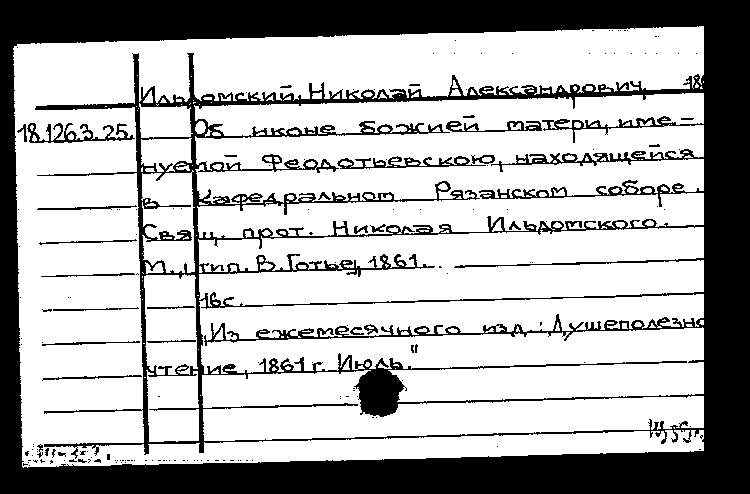 Ильдомский, Николай Александрович, 18
18.126.3.25. Об иконе божией матери, име-
нуемой Феодотьевскою, находящейся
в Кафедральном Рязанском соборе.
Свящ. прот. Николая Ильдомского.
М., тип. В. Готье, 1861.
16 с.
"Из ежемесячного изд.: Душеполезно
чтение, 1861 г. Июль."